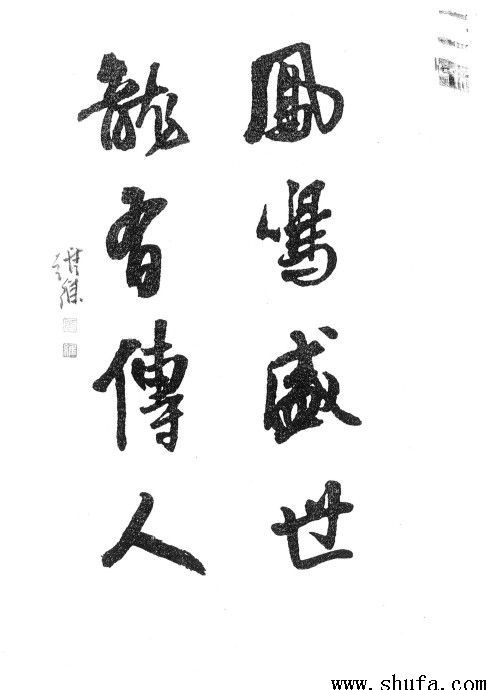 鳳鳴盛世
龍有傳人
www.shufa.com